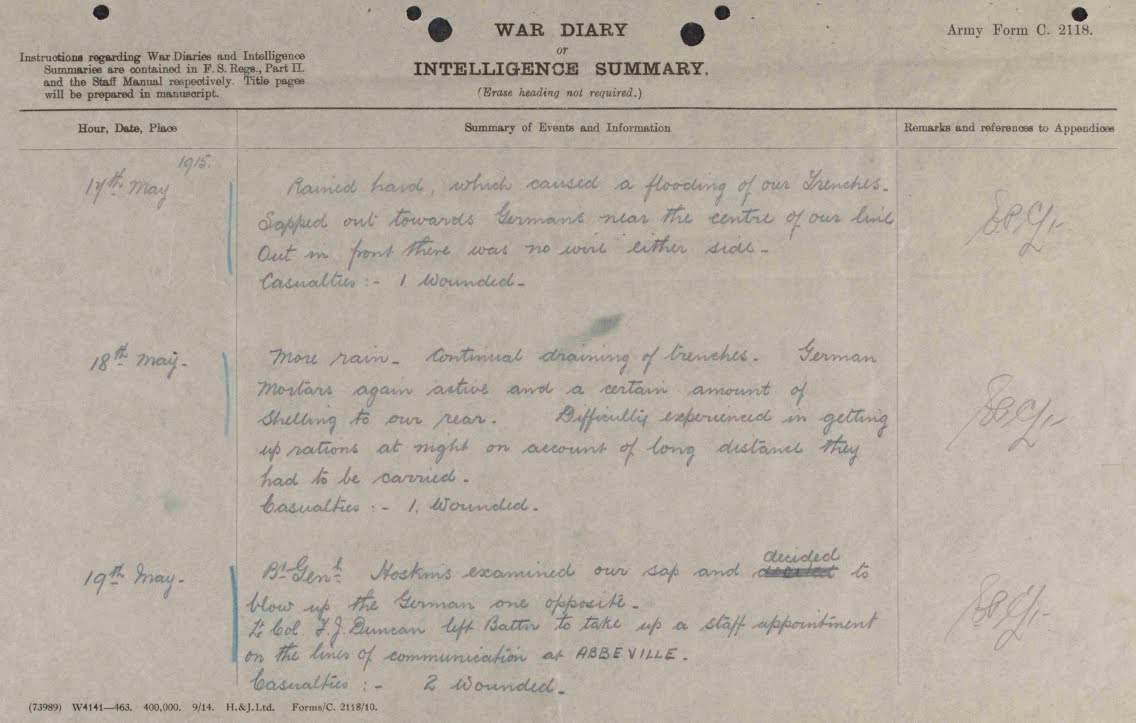 WAR DIARY
or
INTELLIGENCE SUMMARY.
(Erase heading not required.)
Army Form C. 2118.
Instructions regarding War Diaries and Intelligence
Summaries are contained in F. S. Regs., Part II.
and the Staff Manual respectively. Title pages
will be prepared in manuscript.
Hour, Date, Place
Summary of Events and Information
Remarks and references to Appendices
1915.
17th May
Rained hard, which caused a flooding of our Trenches.
Sapped out towards Germans near the centre of our line
Out in front there was no wire either side -
Casualties :- 1 Wounded -
18th May -
More rain - Continual draining of trenches. German
Mortars again active and a certain amount of
Shelling to our rear. Difficulty experienced in getting
up rations at night on account of long distance they
had to be carried -
Casualties :- 1. Wounded -
19th May -
Br. Genl. Hoskins examined our sap and decided to
blow up the German one opposite -
Lt Col. F. J. Duncan left Battn to take up a staff appointment
on the lines of communication at ABBEVILLE -
Casualties :- 2 Wounded -
(73989) W4141—463. 400,000. 9/14. H.&J.Ltd. Forms/C. 2118/10.